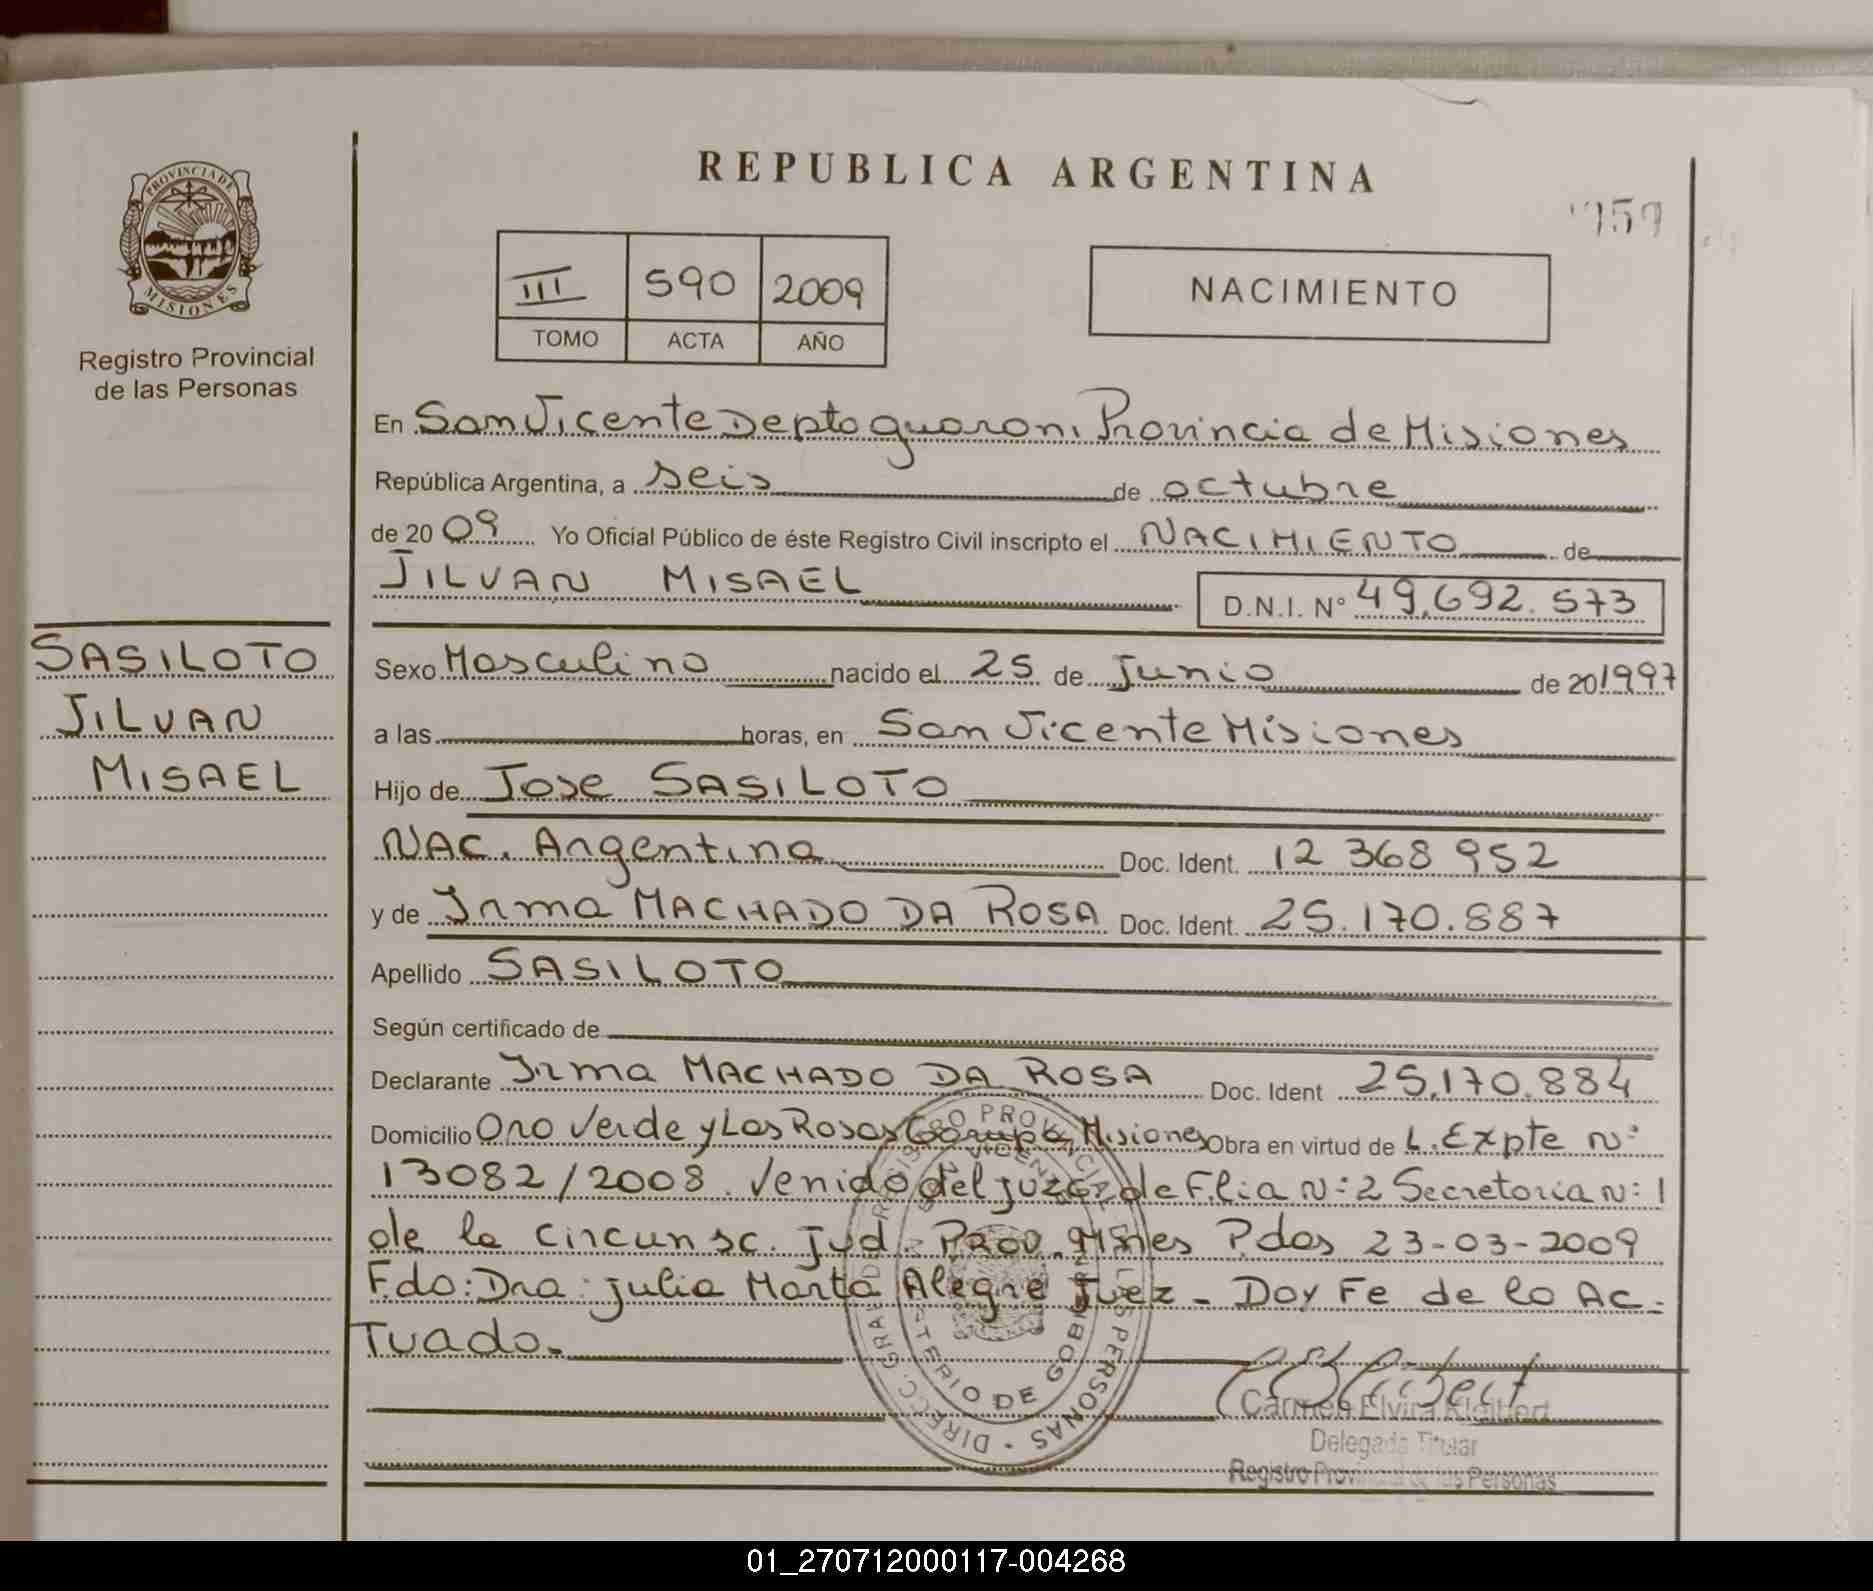 PROVINCIA DE
MISIONES
Registro Provincial
de las Personas
REPUBLICA ARGENTINA
III 590 2009
TOMO ACTA AÑO
NACIMIENTO
En San Vicente Depto guarani Provincia de Misiones
República Argentina, a seis de octubre
de 2009 Yo Oficial Público de éste Registro Civil inscripto el NACIMIENTO de
JILVAN MISAEL D.N.I. Nº 49.692.573
SASILOTO
JILVAN
MISAEL
Sexo Masculino nacido el 25 de Junio de 201997
a las horas, en San Vicente Misiones
Hijo de Jose SASILOTO
NAC. Argentina Doc. Ident. 12 368 952
y de Irma MACHADO DA ROSA Doc. Ident. 25.170.887
Apellido SASILOTO
Según certificado de
Declarante Irma MACHADO DA ROSA Doc. Ident 25.170.884
Domicilio Oro Verde y Las Rosas Garupa Misiones Obra en virtud de L. Expte Nº
13082/2008. Venido del juzg. de Flia Nº 2 Secretaria Nº 1
de la circunsc. Jud. Prov. Mnes P.das 23-03-2009
Fdo: Dra: Julia Marta Alegre Juez - Doy Fe de lo Ac-
tuado.
DIRECC. GRAL. DE REGISTRO PROVINCIAL DE LAS PERSONAS
MINISTERIO DE GOBIERNO
SAN VICENTE
Carmen Elvira
Delegada Titular
Registro Provincial de las Personas
01_270712000117-004268